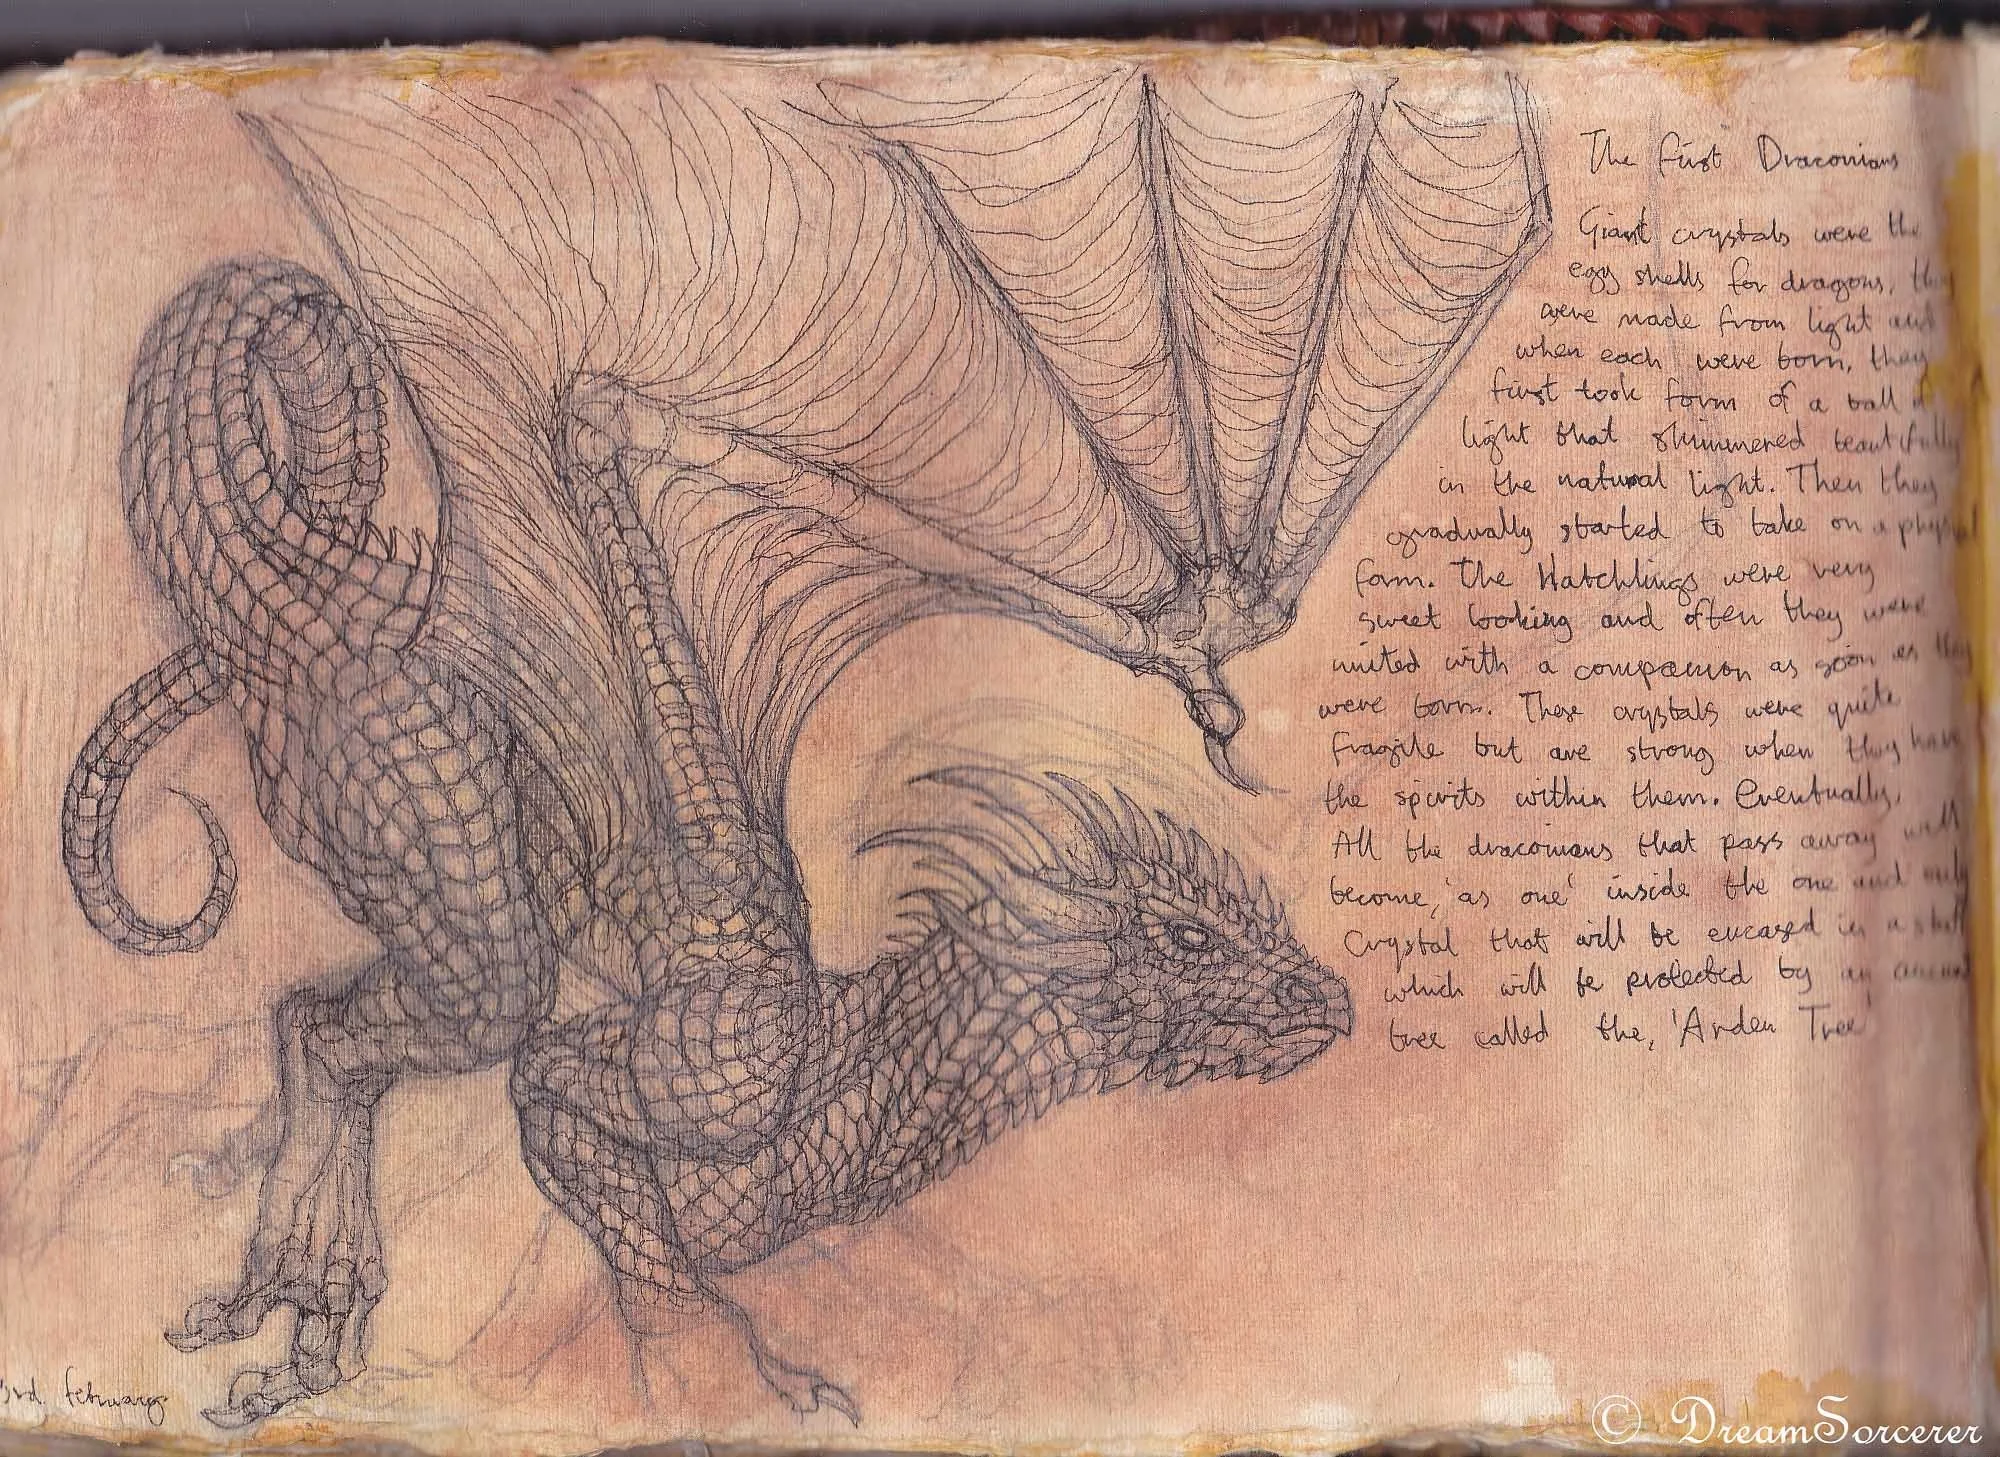 The First Draconians
Giant crystals were the
egg shells for dragons, they
were made from light and
when each were born, they
first took form of a ball of
light that shimmered beautifully
in the natural light. Then they
gradually started to take on a physical
form. The Hatchlings were very
sweet looking and often they were
united with a companion as soon as they
were born. These crystals were quite
fragile but are strong when they have
the spirits within them. Eventually,
All the draconians that pass away will
become, 'as one' inside the one and only
Crystal that will be encased in a
which will be protected by an
tree called the, 'Arden Tree'
3rd February
© DreamSorcerer